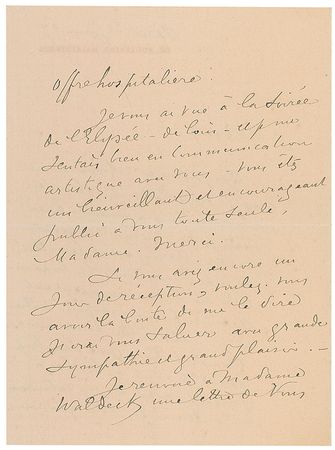 offre hospitalière.
Je vous ai vue à la Soirée
de l'Elysée - de loin - et je me
Sentais bien en Communication
artistique avec vous - vous êtes
un bienveillant et encourageant
public à vous toute Seule,
Madame. Merci.
Si vous avez encore un
Jour de réception, voulez-vous
avoir la bonté de me le dire
J'irai vous Saluer avec grande
Sympathie et grand plaisir. -
Je renvoie à Madame
Waldeck une lettre de Vous